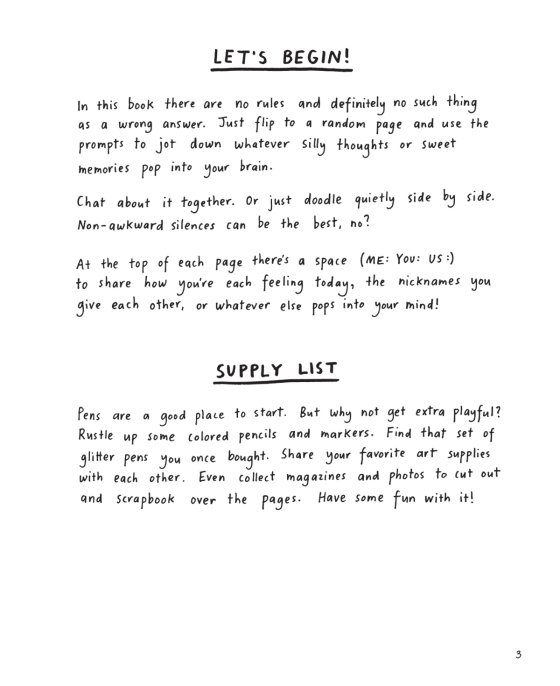 LET'S BEGIN!
In this book there are no rules and definitely no such thing
as a wrong answer. Just flip to a random page and use the
prompts to jot down whatever silly thoughts or sweet
memories pop into your brain.
Chat about it together. Or just doodle quietly side by side.
Non-awkward silences can be the best, no?
At the top of each page there's a space (ME: YOU: US:)
to share how you're each feeling today, the nicknames you
give each other, or whatever else pops into your mind!
SUPPLY LIST
Pens are a good place to start. But why not get extra playful?
Rustle up some colored pencils and markers. Find that set of
glitter pens you once bought. Share your favorite art supplies
with each other. Even collect magazines and photos to cut out
and scrapbook over the pages. Have some fun with it!
3